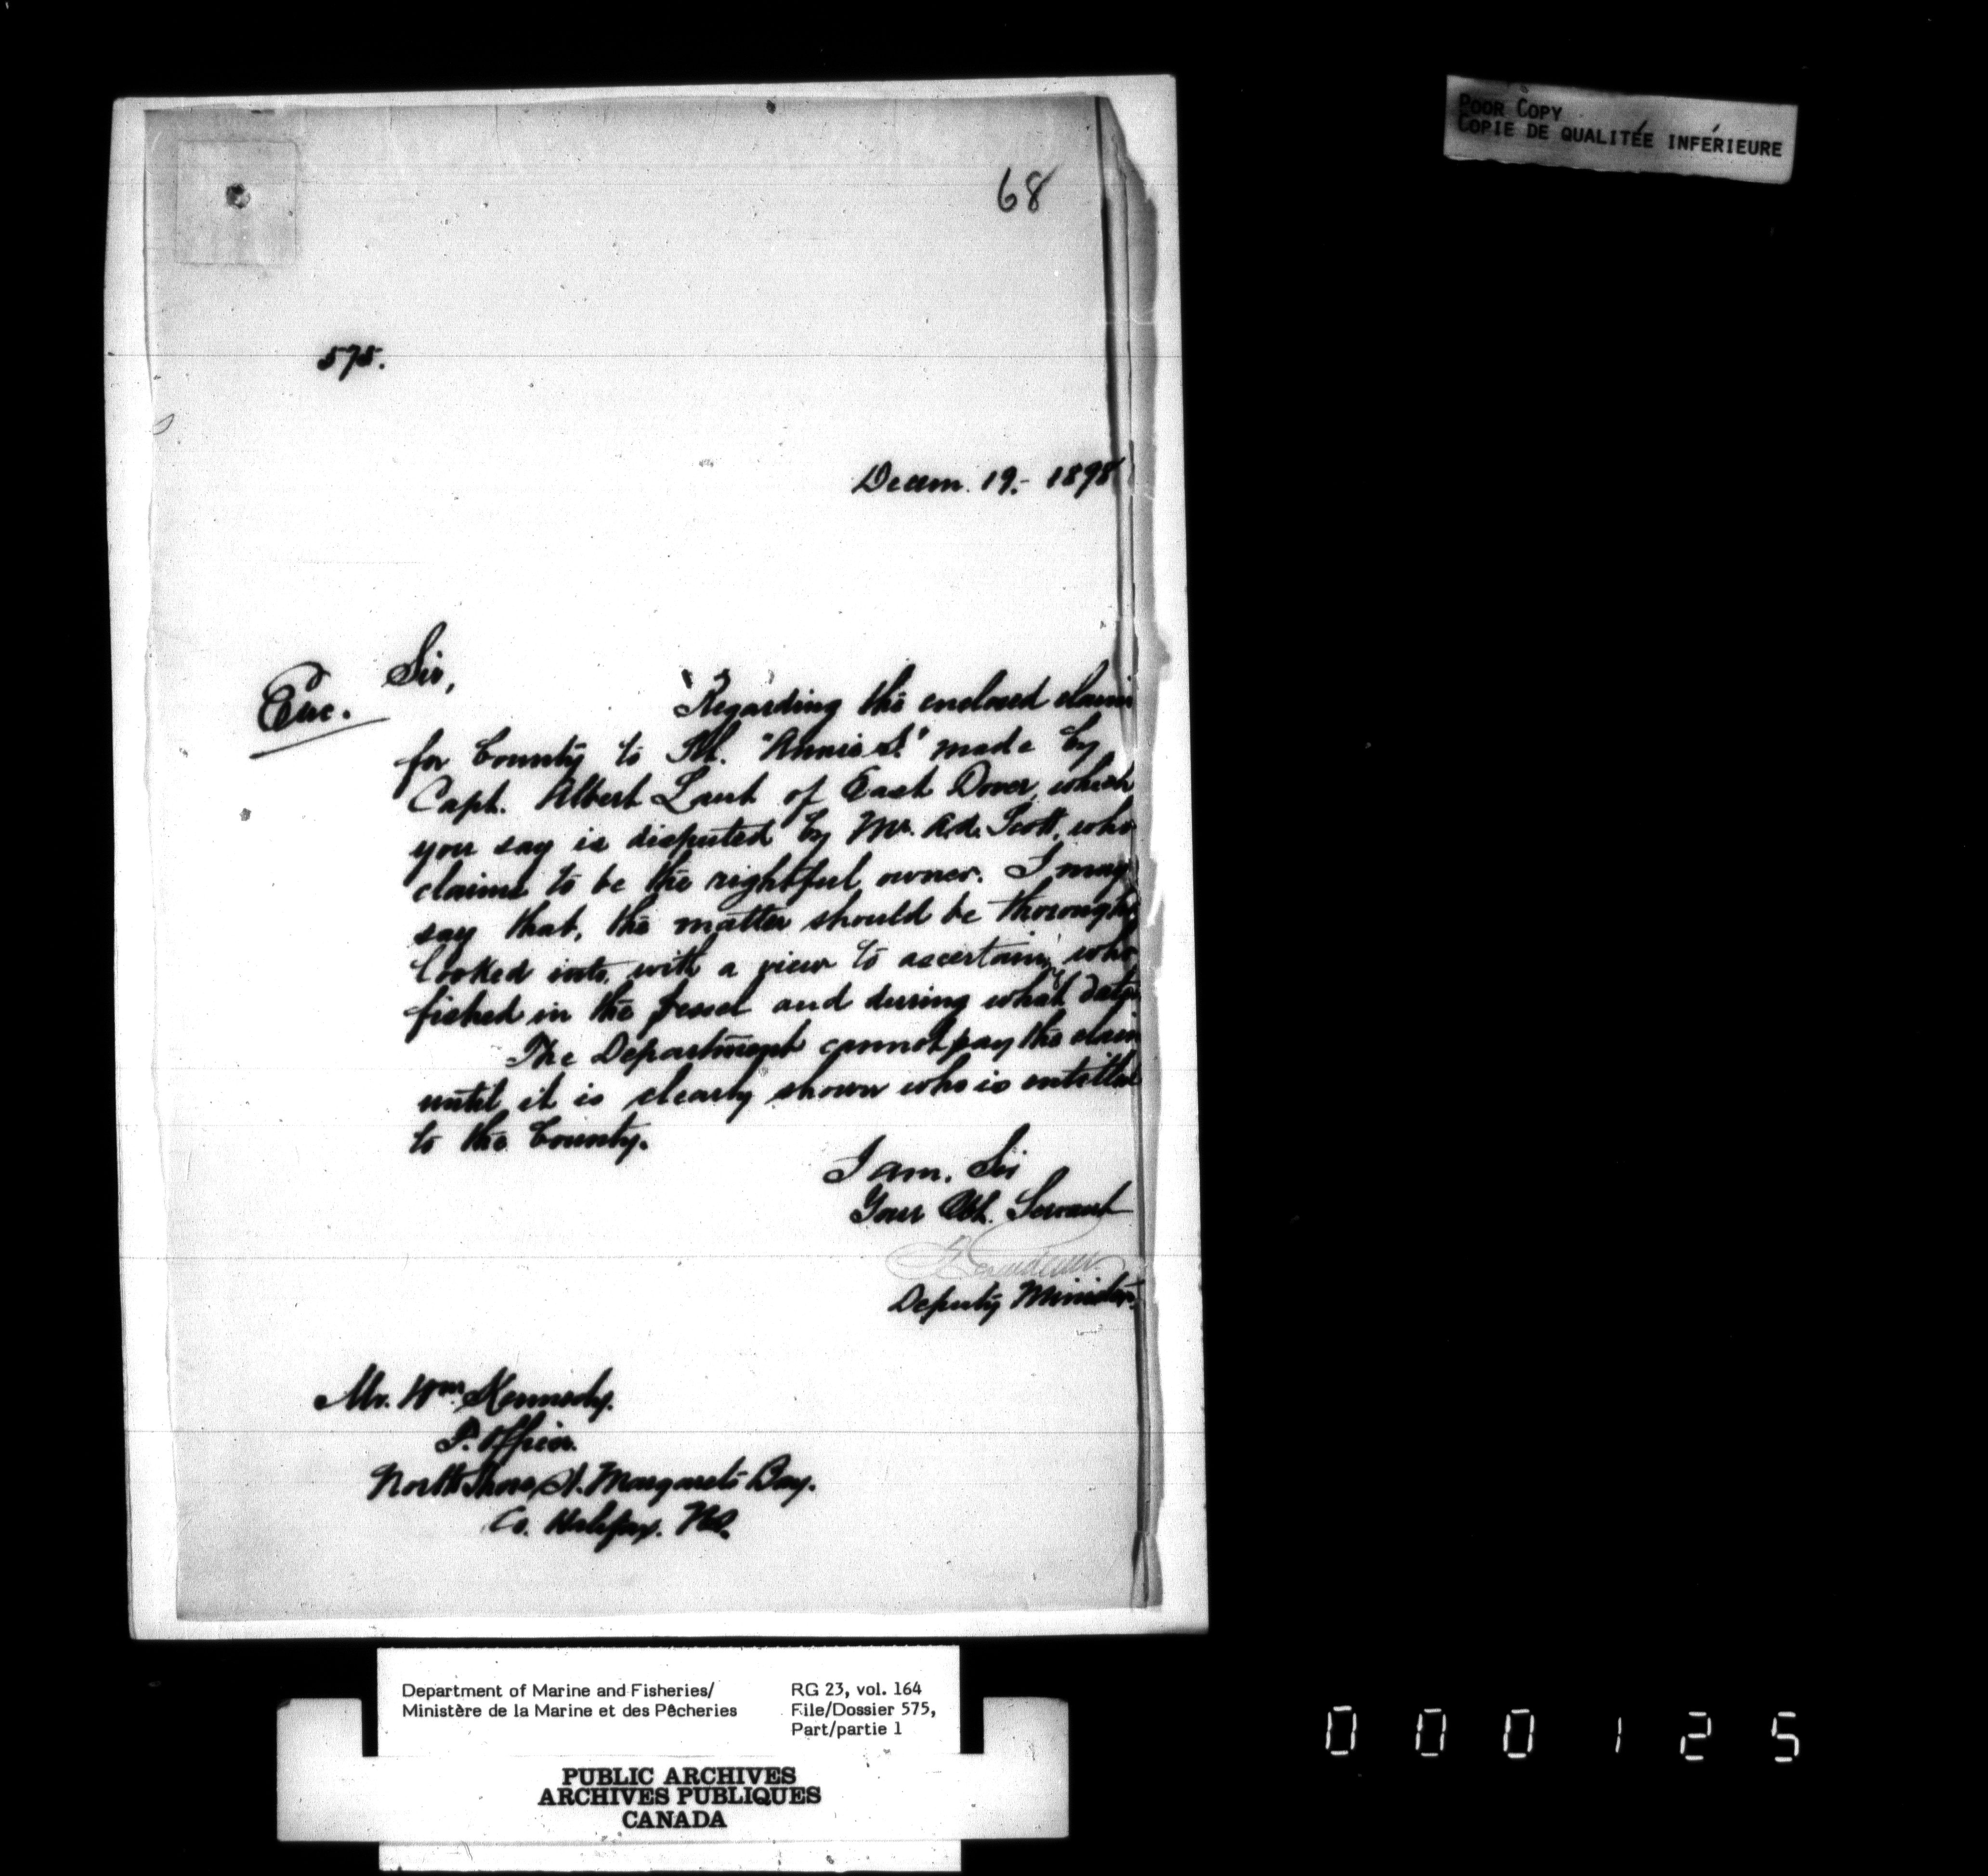 POOR COPY
COPIE DE QUALITÉE INFÉRIEURE
68
575.
Decem. 19.- 1898
Sir,
Enc.
Regarding the enclosed claim
for bounty to Sch. "Annie S." made by
Capt. Albert Laut of East Dover, which
you say is disputed by Mr. Ad. Scott, who
claims to be the rightful owner. I may
say that, the matter should be thorough
looked into, with a view to ascertaing who
fished in the vessel and during what dates
The Department cannot pay the claim
until it is clearly shown who is entitled
to the bounty.
I am, Sir
Your Obt. Servant
Deputy Minister.
Mr. Wm. Kennedy.
F. Officer.
North Shore, St. Margaret's Bay.
Co. Halifax. N.S.
Department of Marine and Fisheries/
Ministère de la Marine et des Pêcheries
RG 23, vol. 164
File/Dossier 575,
Part/partie 1
PUBLIC ARCHIVES
ARCHIVES PUBLIQUES
CANADA
000125